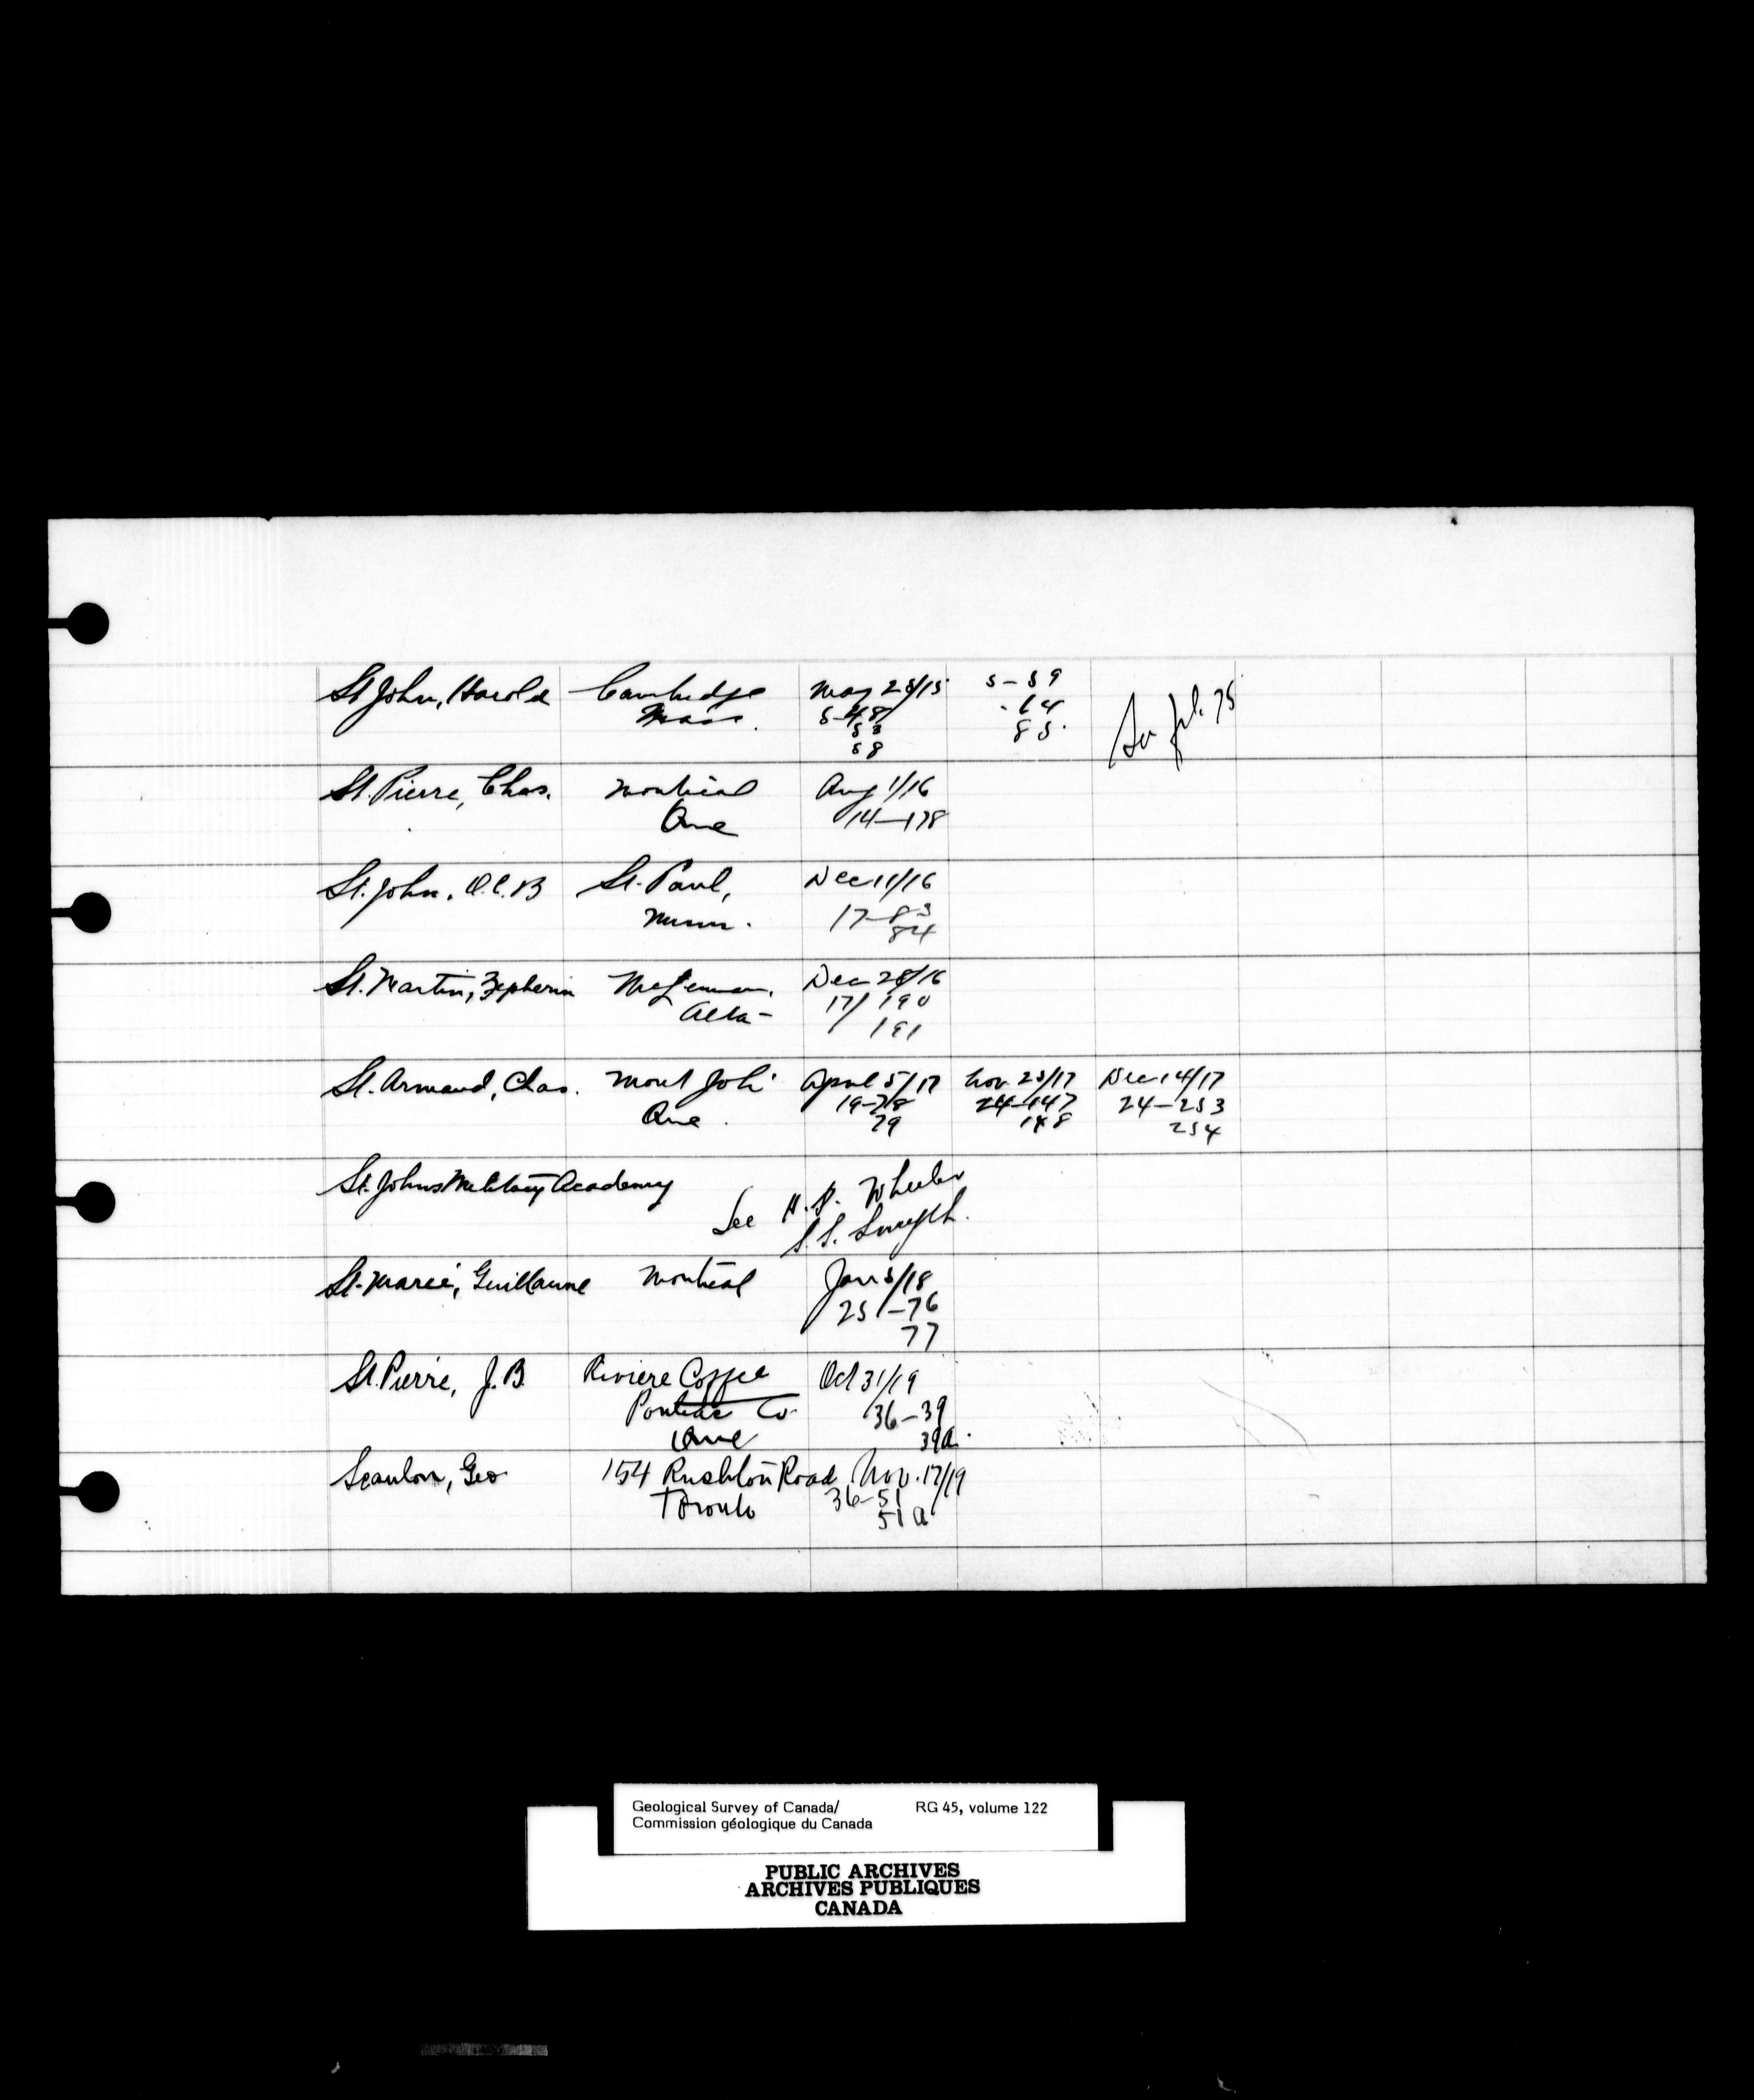 St John, Harold Cambridge May 28/15 5-59
Mass. 5-48 64
53 85.
58
St. Pierre, Chas. Montreal Aug 1/16
Que 14-178
St. John, O.C.B St. Paul, Dec 11/16
Minn. 17-83
84
St. Martin, Zepherin McLennan, Dec 28/16
Alta- 17/190
191
St. Armand, Chas. Mont Joli April 5/17 Nov. 23/17 Dec 14/17
Que. 19-78 24-147 24-253
79 148 254
St. Johns Military Academy
See H. P. Wheeler
S. S. Smyth.
St-Marie, Guillaume Montreal Jan 3/18
25-76
77
St. Pierre, J. B. Riviere Coffee Oct 31/19
Pontiac Co. 36-39
Que 39a.
Scanlon, Geo 154 Rushton Road Nov. 17/19
Toronto 36-51
51a
Geological Survey of Canada/ RG 45, volume 122
Commission géologique du Canada
PUBLIC ARCHIVES
ARCHIVES PUBLIQUES
CANADA